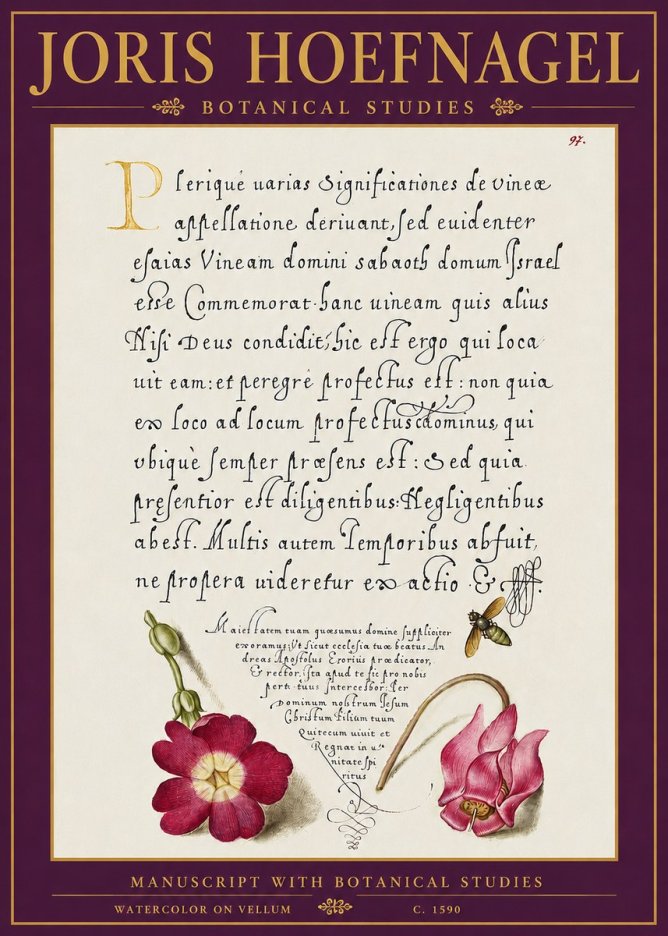 JORIS HOEFNAGEL
BOTANICAL STUDIES
97.
Plerique uarias Significationes de vineæ
appellatione deriuant, sed euidenter
esaias Vineam domini sabaoth domum Israel
esse Commemorat. hanc uineam quis alius
Nisi Deus condidit, hic est ergo qui loca
uit eam: et peregrè profectus est: non quia
ex loco ad locum profectus dominus, qui
vbiquè semper præsens est: Sed quia
pręsentior est diligentibus: Negligentibus
abest. Multis autem Temporibus abfuit,
ne propera uideretur exactio. &
Maiestatem tuam quæsumus domine suppliciter
exoramus: Vt sicut ecclesia tuæ beatus An
dreas Apostolus Exorius prædicator,
& rector, ista apud te sic pro nobis
pert. tuus Intercessor: Per
Dominum nostrum Iesum
Christum Filium tuum
Quitecum uiuit et
Regnat in u
nitate spi
ritus
MANUSCRIPT WITH BOTANICAL STUDIES
WATERCOLOR ON VELLUM
C. 1590